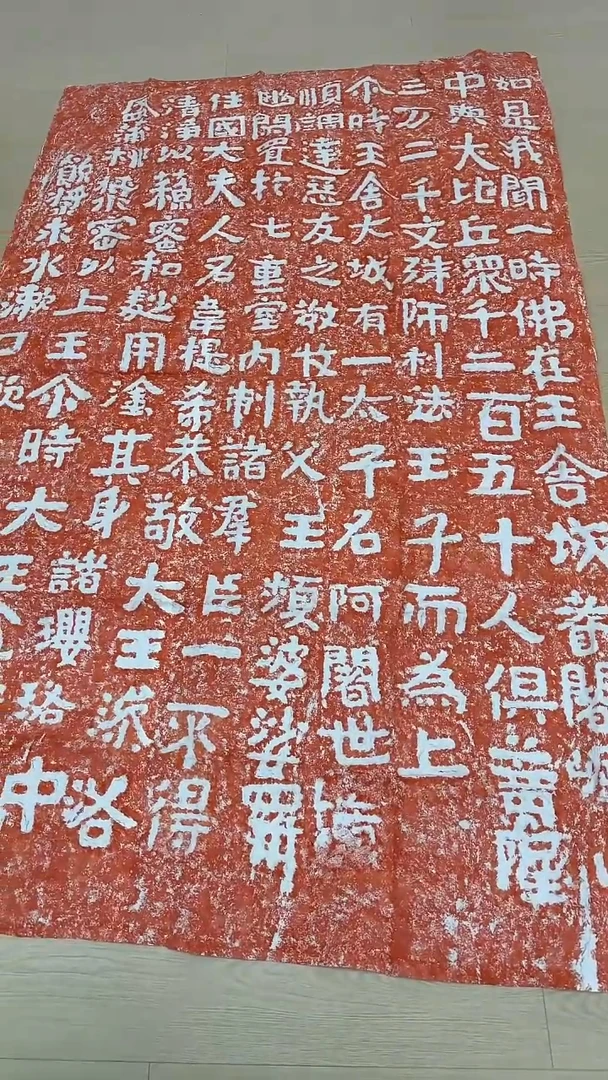 如是我聞一時佛在王舍城耆闍崛山
中與大比丘衆千二百五十人俱菩薩
三万二千文殊師利法王子而為上
尒時王舍大城有一太子名阿闍世隨
順調達惡友之教收執父王頻婆娑羅
幽閉置於七重室內制諸群臣一不得
往國大夫人名韋提希恭敬大王澡浴
清淨以蘇蜜和麨用塗其身諸瓔珞中
盛蒲桃漿密以上王尒時大王
飲漿求水漱口